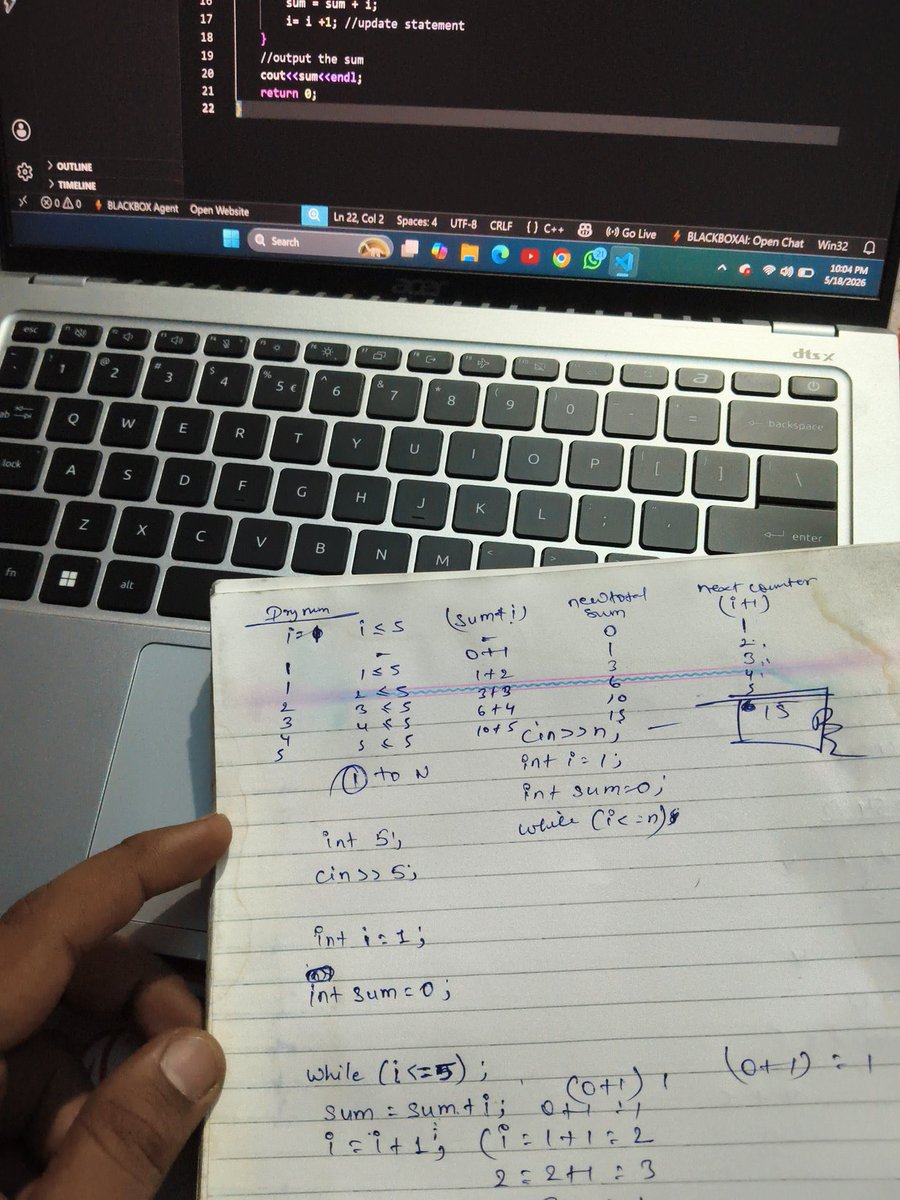 16 sum = sum + i;
17 i= i +1; //update statement
18 }
19 //output the sum
20 cout<<sum<<endl;
21 return 0;
22
> OUTLINE
> TIMELINE
0 0 BLACKBOX Agent Open Website Ln 22, Col 2 Spaces: 4 UTF-8 CRLF { } C++ Go Live BLACKBOXAI: Open Chat Win32
Search
10:04 PM
5/18/2026
acer
dts X
esc
! 1 @ 2 # 3 $ 4 % 5 € ^ 6 & 7 * 8 ( 9 ) 0 - = backspace
ab Q W E R T Y U I O P [ ] \
lock A S D F G H J K L ; ' enter
Z X C V B N M < >
fn alt
Dry run
i= i ≤ 5 (sum+i) new total sum next counter (i+1)
- - 0 1
1 1 ≤ 5 0+1 1 2
1 2 ≤ 5 1+2 3 3
2 3 ≤ 5 3+3 6 4
3 4 ≤ 5 6+4 10 5
4 5 ≤ 5 10+5 15
5
15
cin>>n;
① to N
int i=1;
int sum=0;
while (i<=n)
int 5;
cin>> 5;
int i=1;
int sum=0;
while (i<=5);
(0+1) (0+1) = 1
sum = sum+i; 0+1 = 1
i = i+1; (i=1+1=2
2=2+1=3